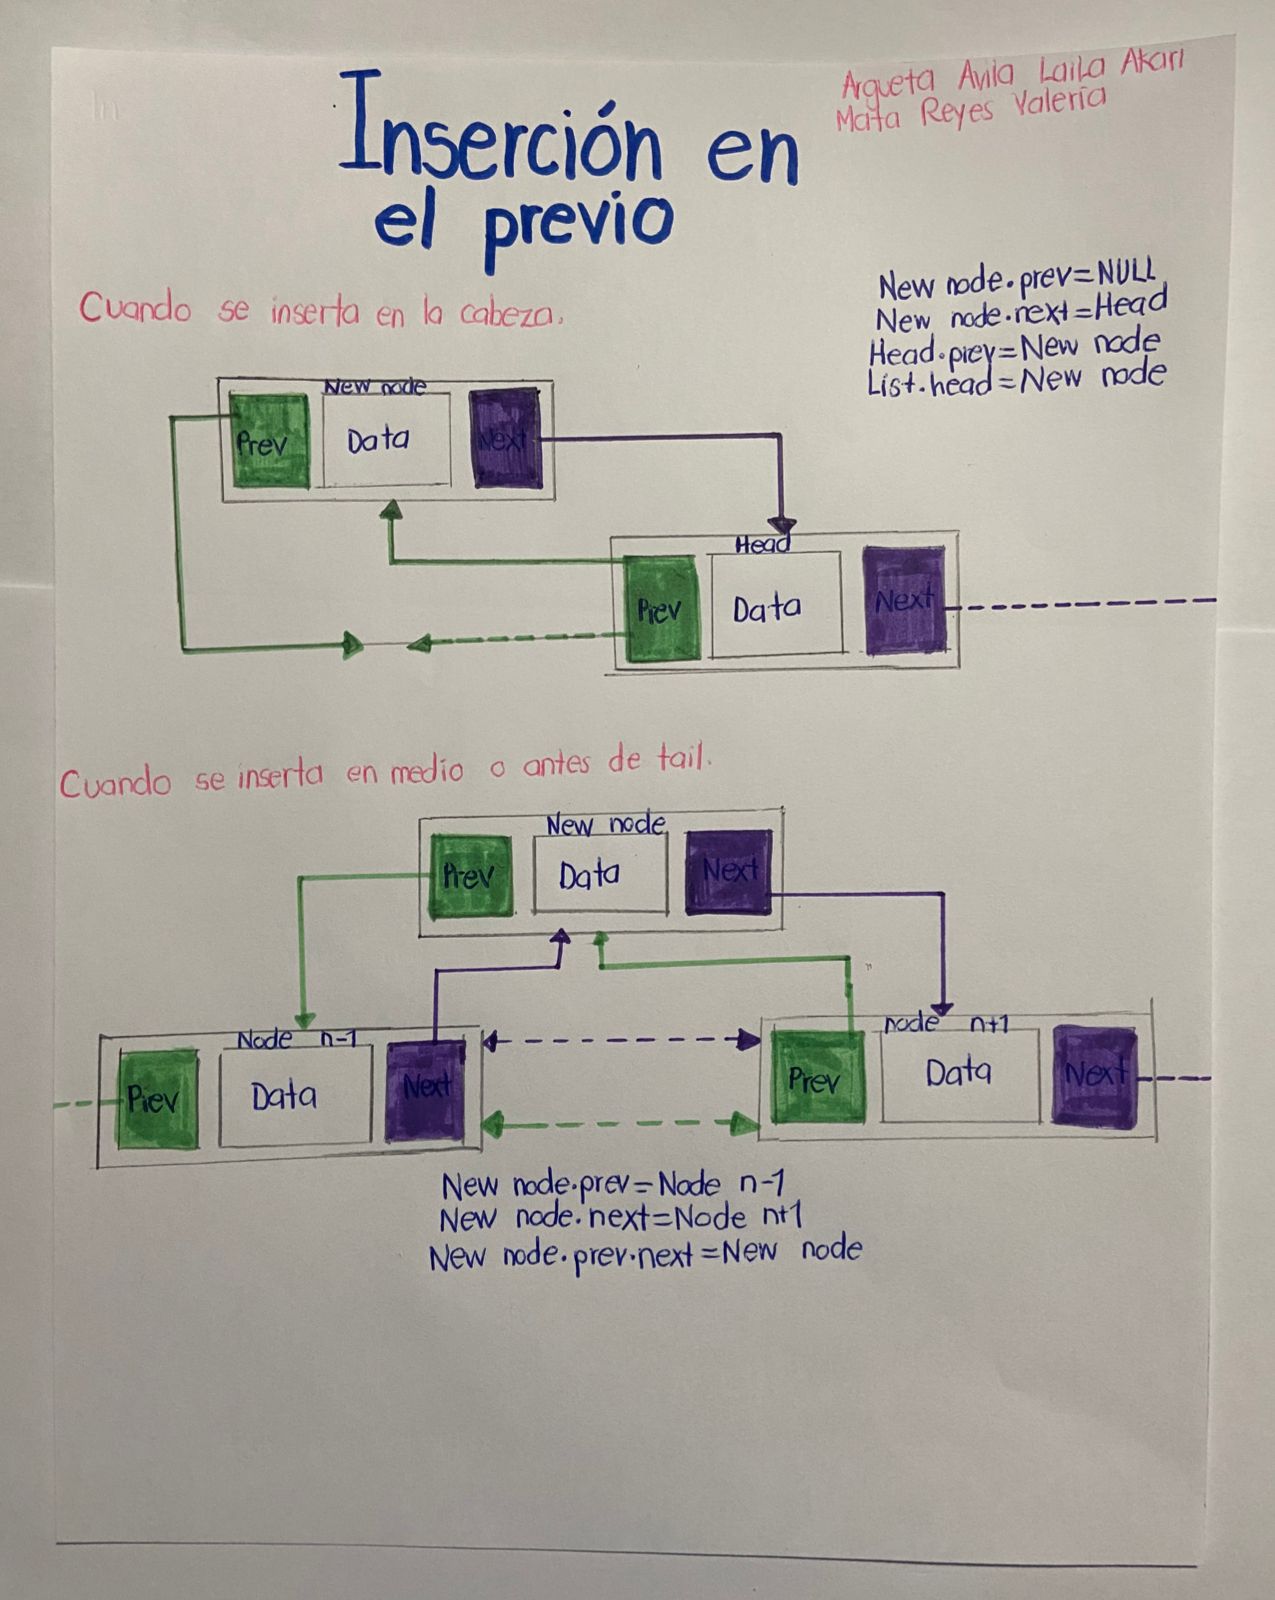 Argueta Avila Laila Akari
Mata Reyes Valeria
Inserción en
el previo
Cuando se inserta en la cabeza.
New node.prev=NULL
New node.next=Head
Head.prev=New node
List.head=New node
New node
Prev Data Next
Head
Prev Data Next
Cuando se inserta en medio o antes de tail.
New node
Prev Data Next
Node n-1
Prev Data Next
node n+1
Prev Data Next
New node.prev=Node n-1
New node.next=Node n+1
New node.prev.next=New node